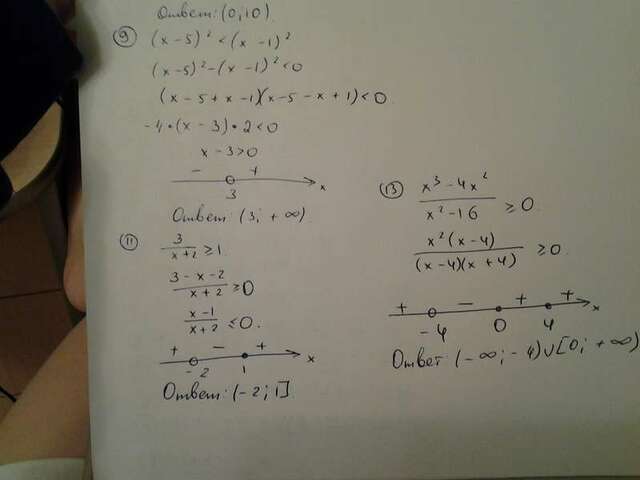 Ответ: (0; 10).
9 (x-5)² < (x-1)²
(x-5)² - (x-1)² < 0
(x-5+x-1)(x-5-x+1) < 0.
-4 • (x-3) • 2 < 0
x-3 > 0
- +
3 x
Ответ: (3; +∞).
11 3/(x+2) ≥ 1.
(3-x-2)/(x+2) ≥ 0
(x-1)/(x+2) ≤ 0.
+ - +
-2 1 x
Ответ: (-2; 1]
13 (x³-4x²)/(x²-16) ≥ 0.
(x²(x-4))/((x-4)(x+4)) ≥ 0.
+ - + +
-4 0 4 x
Ответ (-∞; -4)∪[0; +∞)